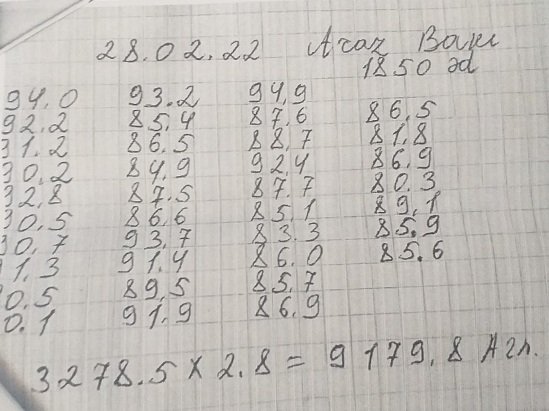 28.02.22 Araz Bakı
1850 əd
94,0 93.2 94,9
92.2 85,4 87,6 86,5
91.2 86.5 88,7 81,8
90,2 84,9 92,4 86,9
92,8 87.5 87.7 80.3
90,5 86,6 85,1 89,1
90,7 93,7 83.3 85.9
1,3 91.4 86.0 85.6
0,5 89,5 85,7
0.1 91,9 86,9
3278.5 x 2.8 = 9179,8 Azn.